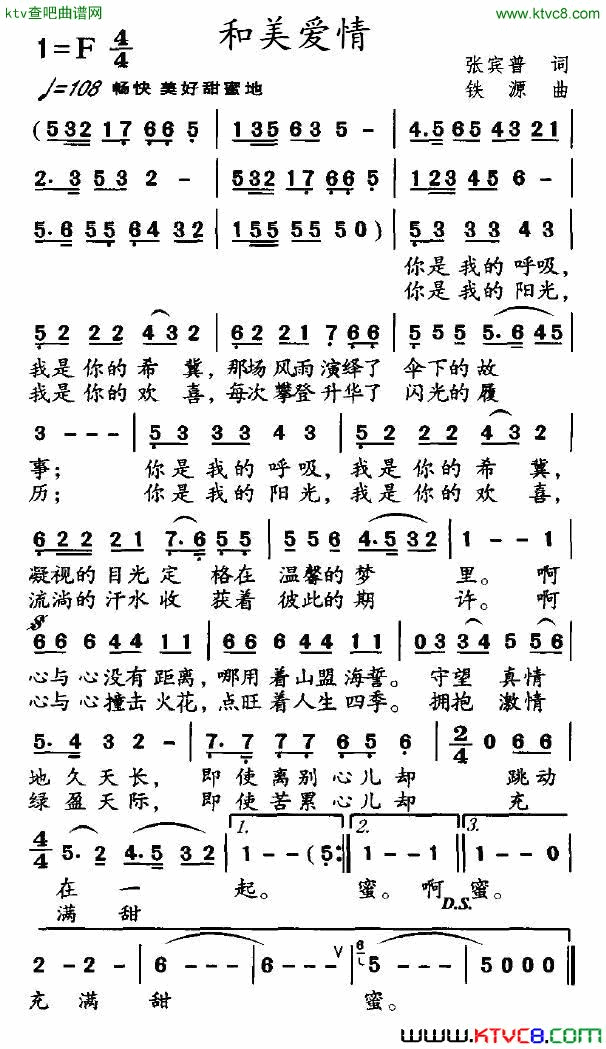 ktv查吧曲谱网
www.ktvc8.com
和美爱情
1=F 4/4
张宾普 词
♩=108 畅快 美好甜蜜地
铁源 曲
(532 17 66 5 | 135 63 5 - | 4.5 65 43 21 |
2.3 53 2 - | 532 17 66 5 | 123 45 6 - |
5.6 55 64 32 | 155 55 50) | 5 3 33 4 3 |
你是我的呼吸,
你是我的阳光,
5 2 22 43 2 | 62 21 7 66 | 55 5 5.6 45 |
我是你的希冀,那场风雨演绎了 伞下的故
我是你的欢喜,每次攀登升华了 闪光的履
3 - - - | 5 3 33 4 3 | 5 2 22 43 2 |
事; 你是我的呼吸,我是你的希冀,
历; 你是我的阳光,我是你的欢喜,
622 21 7.6 55 | 556 4.5 32 | 1 - - 1 |
凝视的目光定 格在 温馨的梦 里。啊
流淌的汗水收 获着 彼此的期 许。啊
66 66 44 11 | 66 66 44 11 | 033 4 5 56 |
心与心没有距离,哪用着山盟海誓。守望真情
心与心撞击火花,点旺着人生四季。拥抱激情
5. 4 3 2 - | 7. 7 77 65 6 | 2/4 0 66 |
地久天长, 即使离别心儿却 跳动
绿盈天际, 即使苦累心儿却 充
4/4 5. 2 4.5 32 | 1. 1 - - (5 :‖ 2. 1 - - 1 ‖ 3. 1 - - 0 |
在一 起。 蜜。啊 蜜。
满甜
D.S.
2 - 2 - | 6 - - - | 6 - - - ∨ | 6 5 - - - | 5 0 0 0 ‖
充满甜 蜜。
www.KTVC8.com